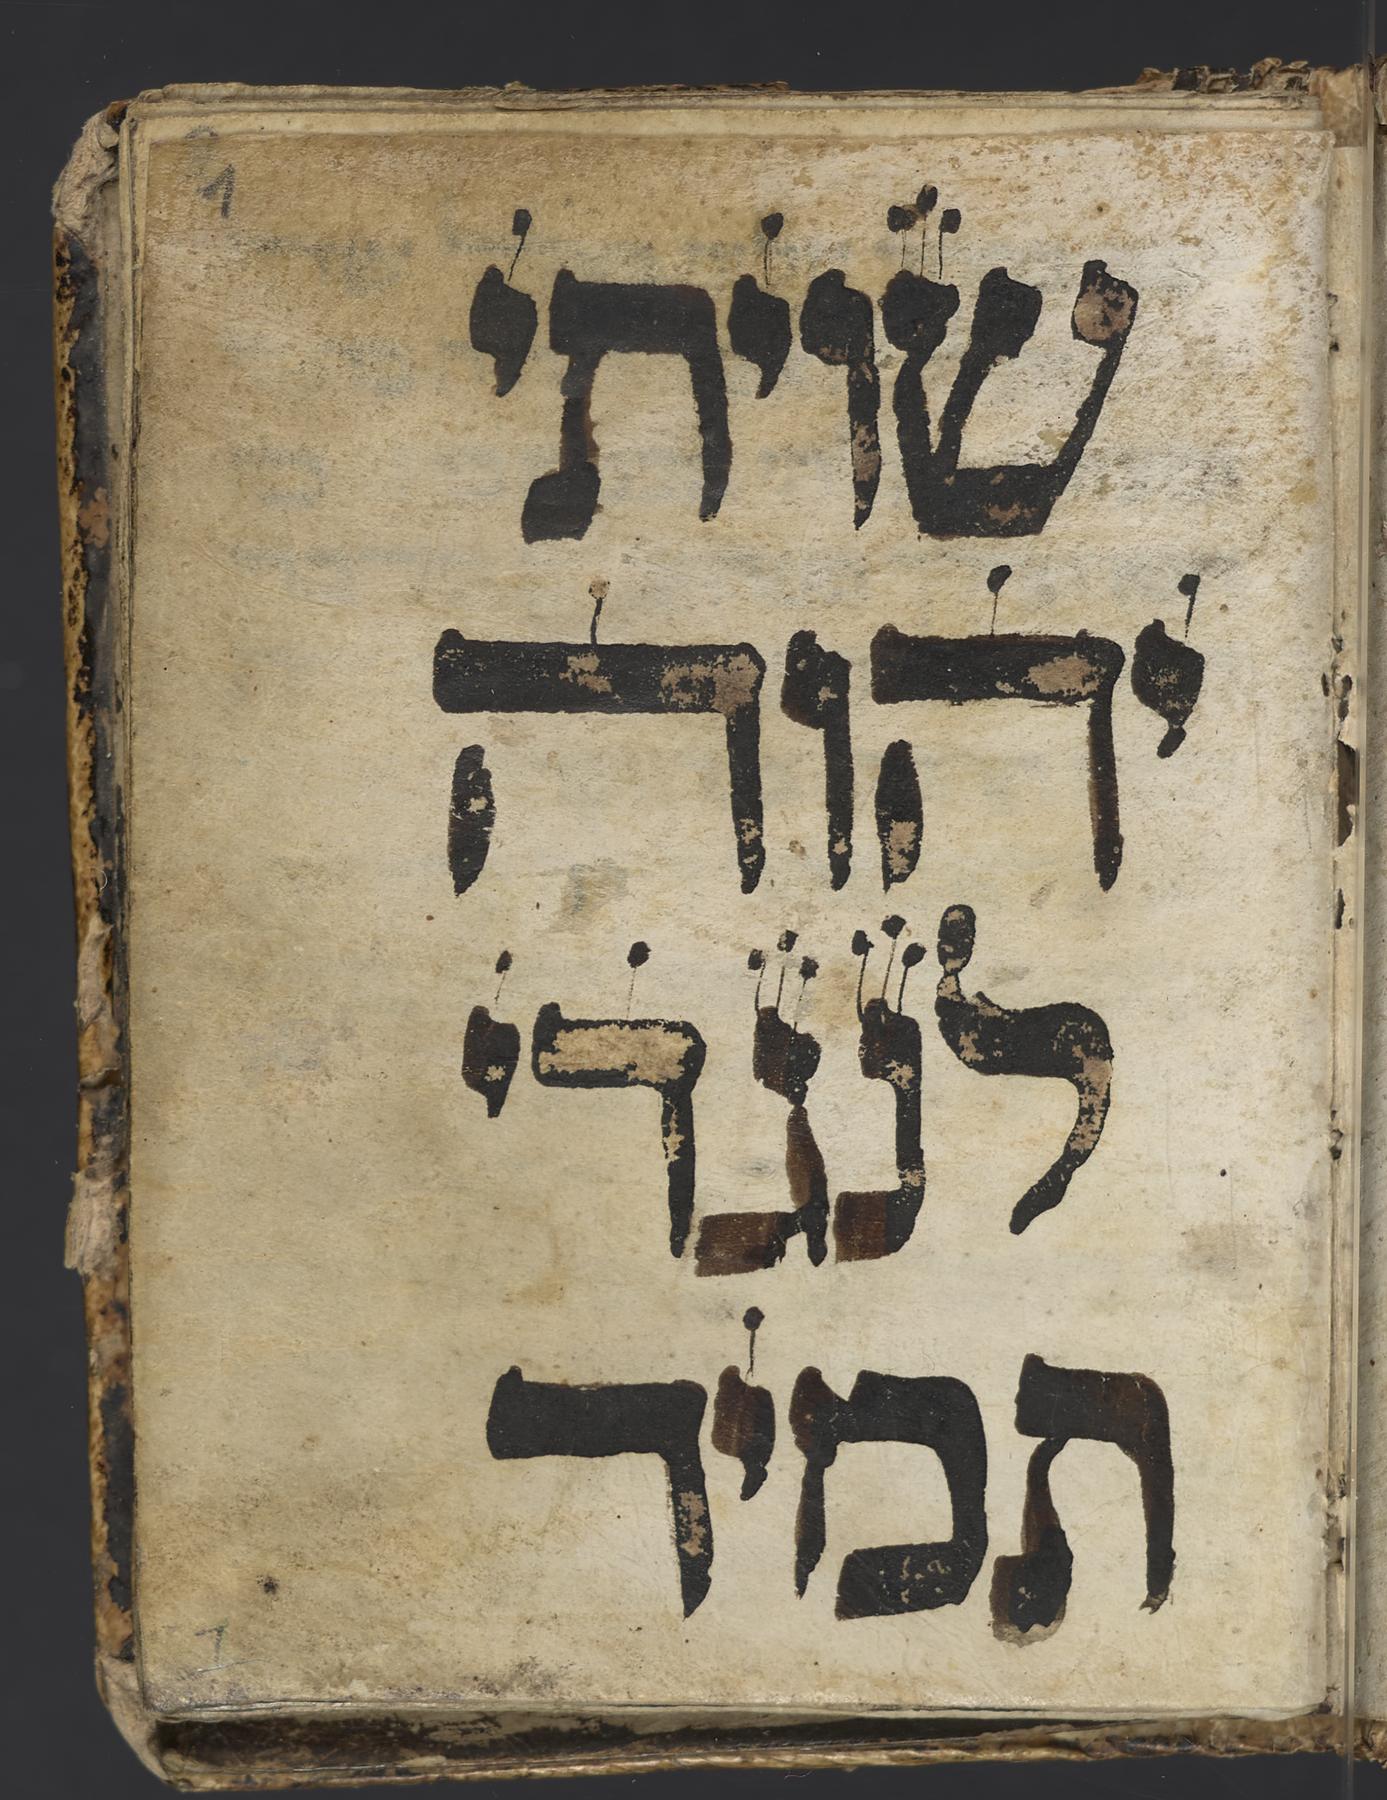 1
שויתי
יהוה
לנגדי
תמיד
1